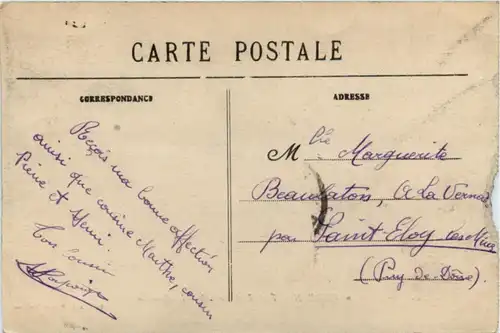 CARTE POSTALE
CORRESPONDANCE
Reçois ma bonne affection
ainsi que cousine Marthe, cousin
Pierre et Henri.
Ton cousin
ADRESSE
Mlle Marguerite
Beaulaton, A La Vernade
par Saint Eloy les Mines
(Puy-de-Dôme).